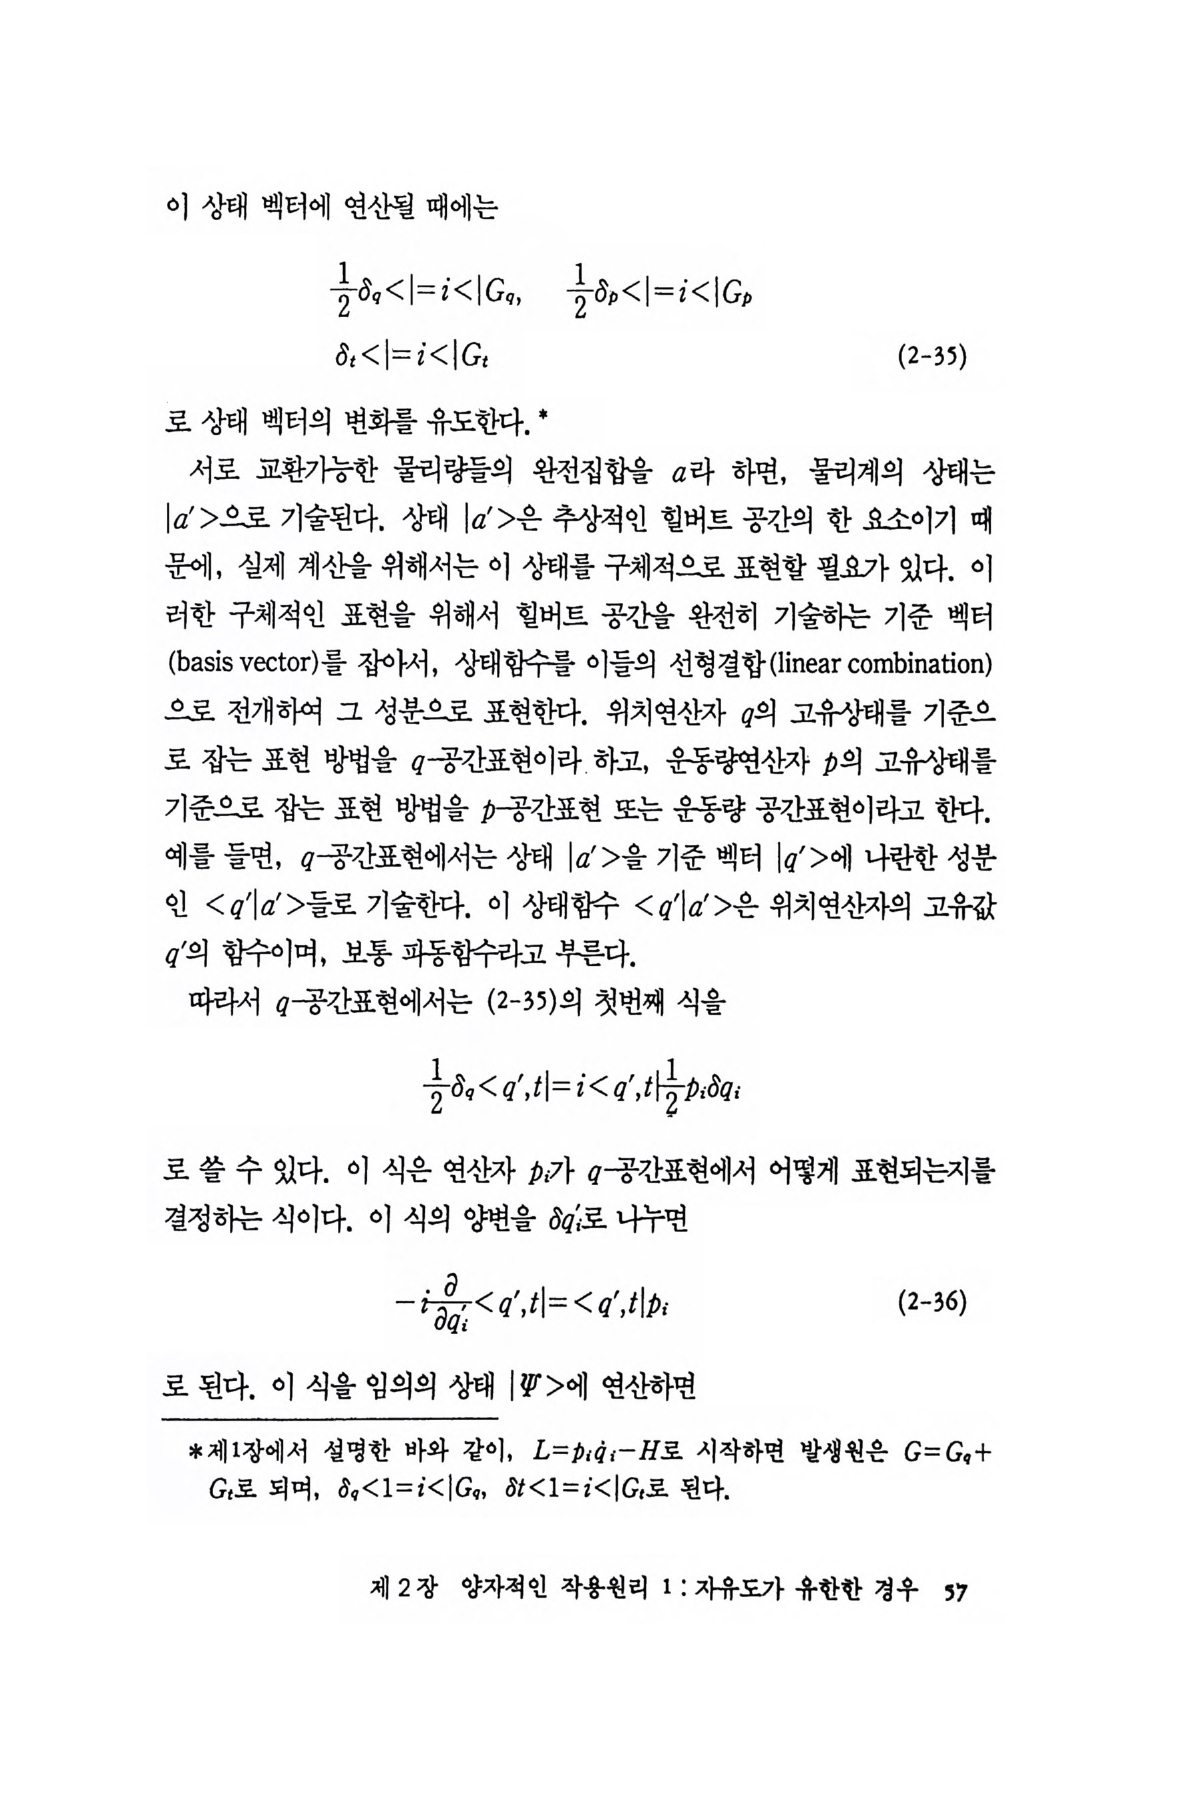 이 상태 벡터에 연산될 때에는
½δ_q<|=i<|G_q, ½δ_p<|=i<|G_p
δ_t<|=i<|G_t (2-35)
로 상태 벡터의 변화를 유도한다.*
서로 교환가능한 물리량들의 완전집합을 a라 하면, 물리계의 상태는
|a′>으로 기술된다. 상태 |a′>은 추상적인 힐버트 공간의 한 요소이기 때
문에, 실제 계산을 위해서는 이 상태를 구체적으로 표현할 필요가 있다. 이
러한 구체적인 표현을 위해서 힐버트 공간을 완전히 기술하는 기준 벡터
(basis vector)를 잡아서, 상태함수를 이들의 선형결합(linear combination)
으로 전개하여 그 성분으로 표현한다. 위치연산자 q의 고유상태를 기준으
로 잡는 표현 방법을 q-공간표현이라 하고, 운동량연산자 p의 고유상태를
기준으로 잡는 표현 방법을 p-공간표현 또는 운동량 공간표현이라고 한다.
예를 들면, q-공간표현에서는 상태 |a′>을 기준 벡터 |q′>에 나란한 성분
인 <q′|a′>들로 기술한다. 이 상태함수 <q′|a′>은 위치연산자의 고유값
q′의 함수이며, 보통 파동함수라고 부른다.
따라서 q-공간표현에서는 (2-35)의 첫번째 식을
½δ_q<q′,t|=i<q′,t|½p_iδq_i
로 쓸 수 있다. 이 식은 연산자 p_i가 q-공간표현에서 어떻게 표현되는지를
결정하는 식이다. 이 식의 양변을 δq′_i로 나누면
−i∂/∂q′_i<q′,t|=<q′,t|p_i (2-36)
로 된다. 이 식을 임의의 상태 |Ψ>에 연산하면
*제1장에서 설명한 바와 같이, L=p_iq̇_i−H로 시작하면 발생원은 G=G_q+
G_t로 되며, δ_q<1=i<|G_q, δt<1=i<|G_t로 된다.
제2장 양자적인 작용원리 1:자유도가 유한한 경우 57